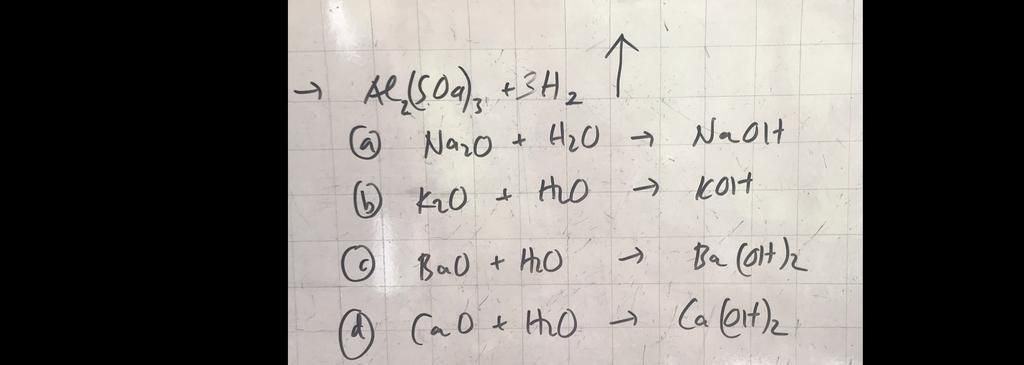 → Al₂(SO4)₃ + 3H₂ ↑
(a) Na₂O + H₂O → NaOH
(b) K₂O + H₂O → KOH
(c) BaO + H₂O → Ba(OH)₂
(d) CaO + H₂O → Ca(OH)₂